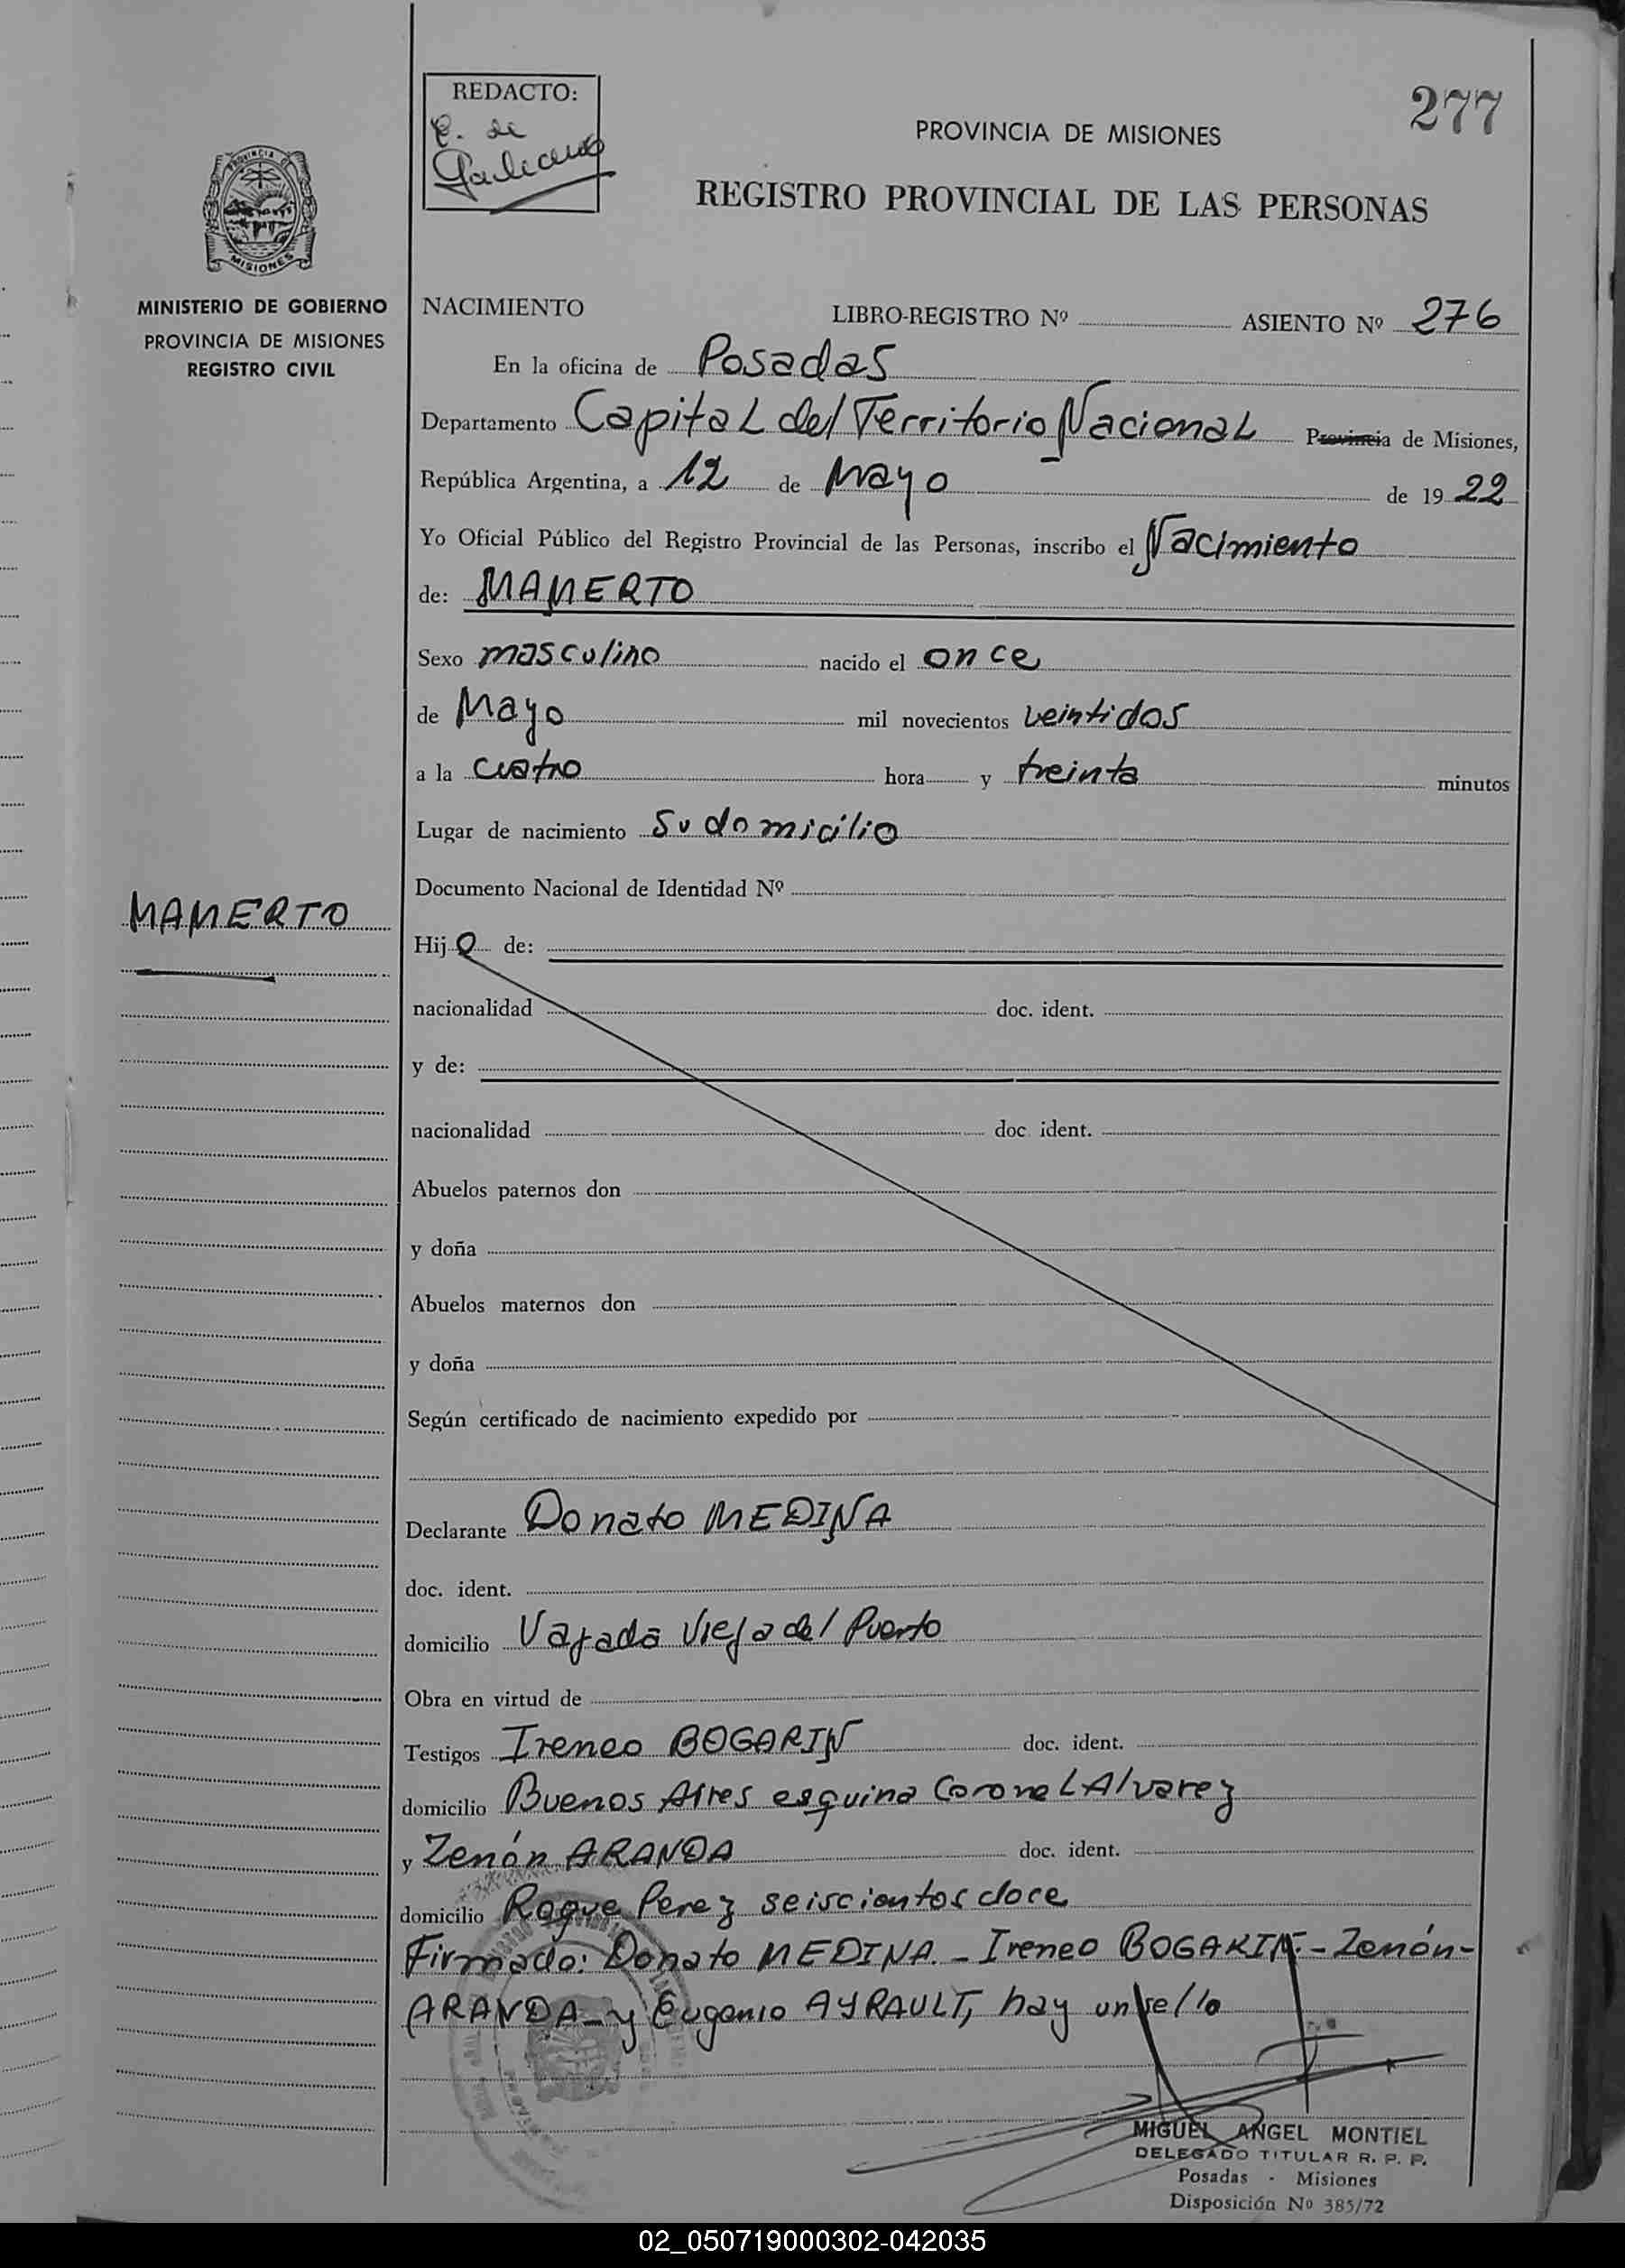 277
REDACTO:
PROVINCIA DE MISIONES
REGISTRO PROVINCIAL DE LAS PERSONAS
PROVINCIA DE
MISIONES
MINISTERIO DE GOBIERNO
PROVINCIA DE MISIONES
REGISTRO CIVIL
NACIMIENTO LIBRO-REGISTRO Nº ASIENTO Nº 276
En la oficina de Posadas
Departamento Capital del Territorio Nacional Provincia de Misiones,
República Argentina, a 12 de Mayo de 1922
Yo Oficial Público del Registro Provincial de las Personas, inscribo el Nacimiento
de: MAMERTO
Sexo masculino nacido el once
de Mayo mil novecientos veintidos
a la cuatro hora y treinta minutos
Lugar de nacimiento Su domicilio
Documento Nacional de Identidad Nº
MAMERTO
Hijo de:
nacionalidad doc. ident.
y de:
nacionalidad doc ident.
Abuelos paternos don
y doña
Abuelos maternos don
y doña
Según certificado de nacimiento expedido por
Declarante Donato MEDINA
doc. ident.
domicilio Vajada Vieja del Puerto
Obra en virtud de
Testigos Ireneo BOGARIN doc. ident.
domicilio Buenos Aires esquina Coronel Alvarez
y Zenón ARANDA doc. ident.
domicilio Roque Perez seiscientos doce
Firmado: Donato MEDINA.- Ireneo BOGARIN.- Zenón-
ARANDA- y Eugenio AYRAULT, hay un sello
MIGUEL ANGEL MONTIEL
DELEGADO TITULAR R. P. P.
Posadas - Misiones
Disposición Nº 385/72
02_050719000302-042035